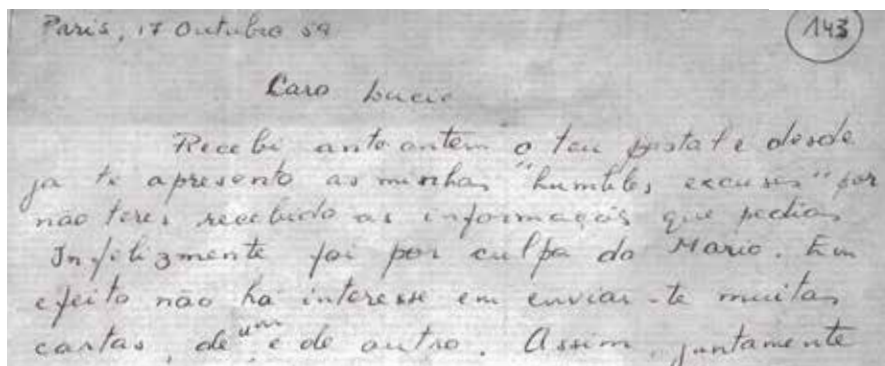 Paris, 17 Outubro 59
143
Caro Lucio
Recebi anteontem o teu postal e desde
ja te apresento as minhas "humbles excuses" por
não teres recebido as informações que pedias
Infelizmente foi por culpa do Mario. Em
efeito não há interesse em enviar-te muitas
cartas, de um e de outro. Assim, juntamente